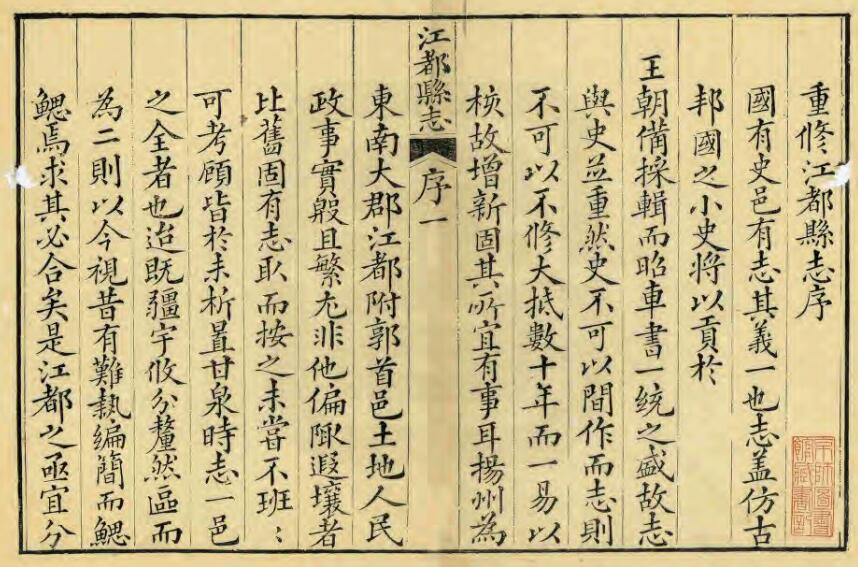 重修江都縣志序
國有史邑有志其義一也志盖仿古
邦國之小史將以貢於
王朝備採輯而昭車書一統之盛故志
與史並重然史不可以間作而志則
不可以不修大抵數十年而一易以
核故增新固其所宜有事耳揚州為
江都縣志 序一
東南大郡江都附郭首邑土地人民
政事實殷且繁尤非他偏陬遐壤者
比舊固有志取而按之未嘗不班〻
可考顧皆於未析置甘泉時志一邑
之全者也迨既疆宇攸分釐然區而
為二則以今視昔有難執編簡而鰓
鰓焉求其必合矣是江都之亟宜分